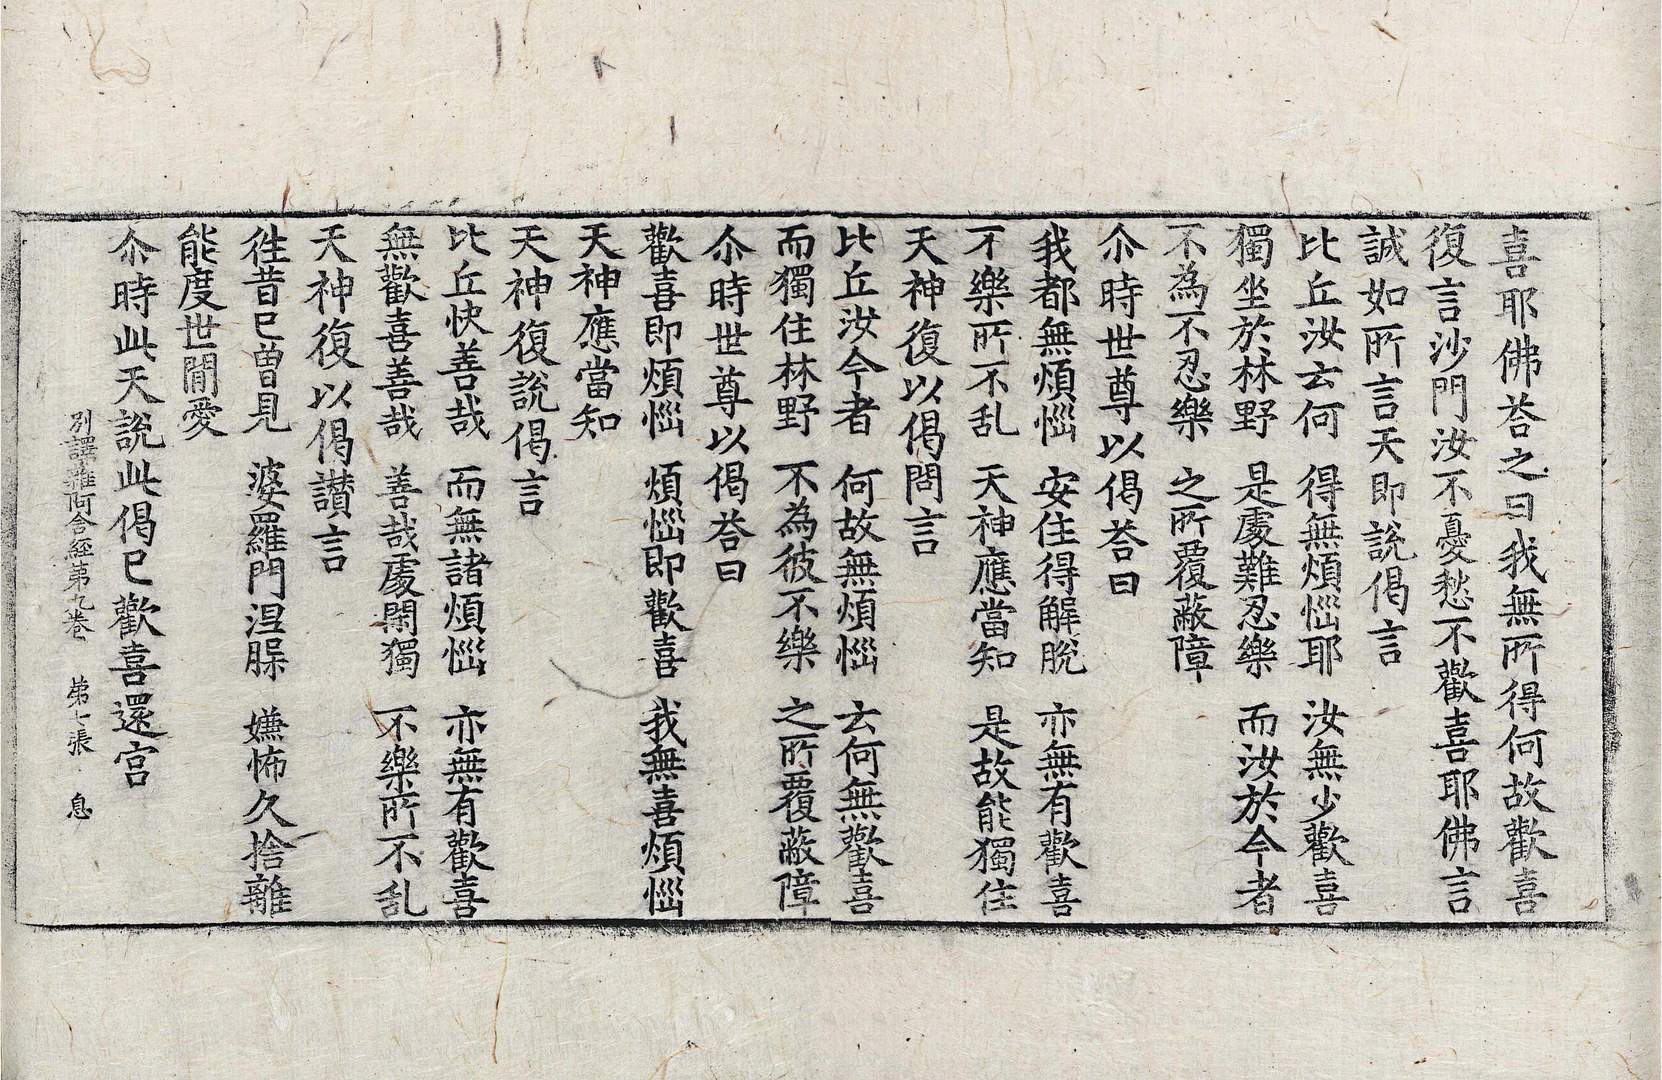 喜耶佛荅之曰我無所得何故歡喜
復言沙門汝不憂愁不歡喜耶佛言
誠如所言天即說偈言
比丘汝云何　得無煩惱耶　汝無少歡喜
獨坐於林野　是處難忍樂　而汝於今者
不為不忍樂　之所覆蔽障
尒時世尊以偈荅曰
我都無煩惱　安住得解脫　亦無有歡喜
不樂所不乱　天神應當知　是故能獨住
天神復以偈問言
比丘汝今者　何故無煩惱　云何無歡喜
而獨住林野　不為彼不樂　之所覆蔽障
尒時世尊以偈荅曰
歡喜即煩惱　煩惱即歡喜　我無喜煩惱
天神應當知
天神復說偈言
比丘快善哉　而無諸煩惱　亦無有歡喜
無歡喜善哉　善哉處閑獨　不樂所不乱
天神復以偈讃言
徃昔已曾見　婆羅門涅槃　嫌怖久捨離
能度世間愛
尒時此天說此偈已歡喜還宮
別譯雜阿含經第九卷　第七張　息